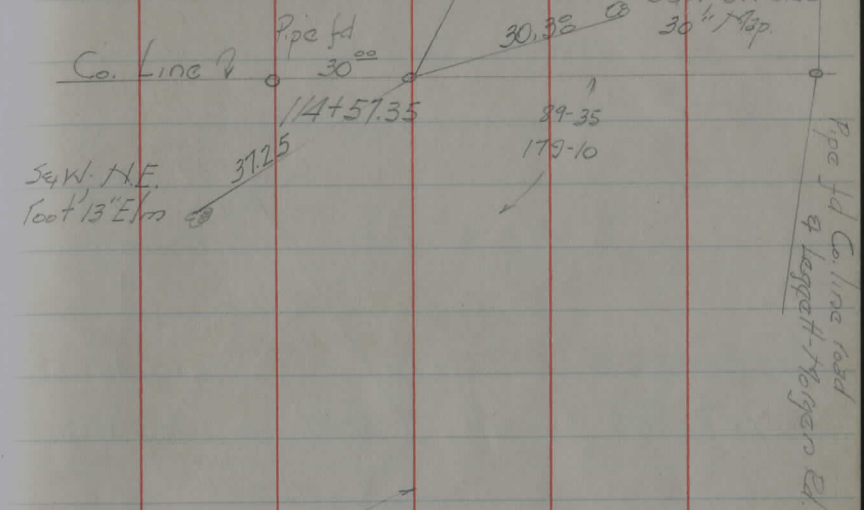 Pipe fd
30.38
30" Map.
Co. Line
30 00
114+57.35
89-35
179-10
37.25
S&W, N.E.
root 13" Elm
Pipe fd Co. line road
& Leggett-Morgan Rd.